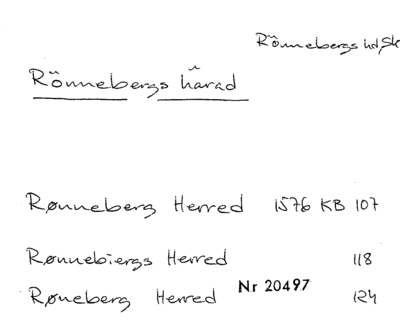 Rönnebergs hd, Sk
Rönnebergs härad
Rønneberg Herred 1576 KB 107
Rønnebiergs Herred 118
Røneberg Herred Nr 20497 124